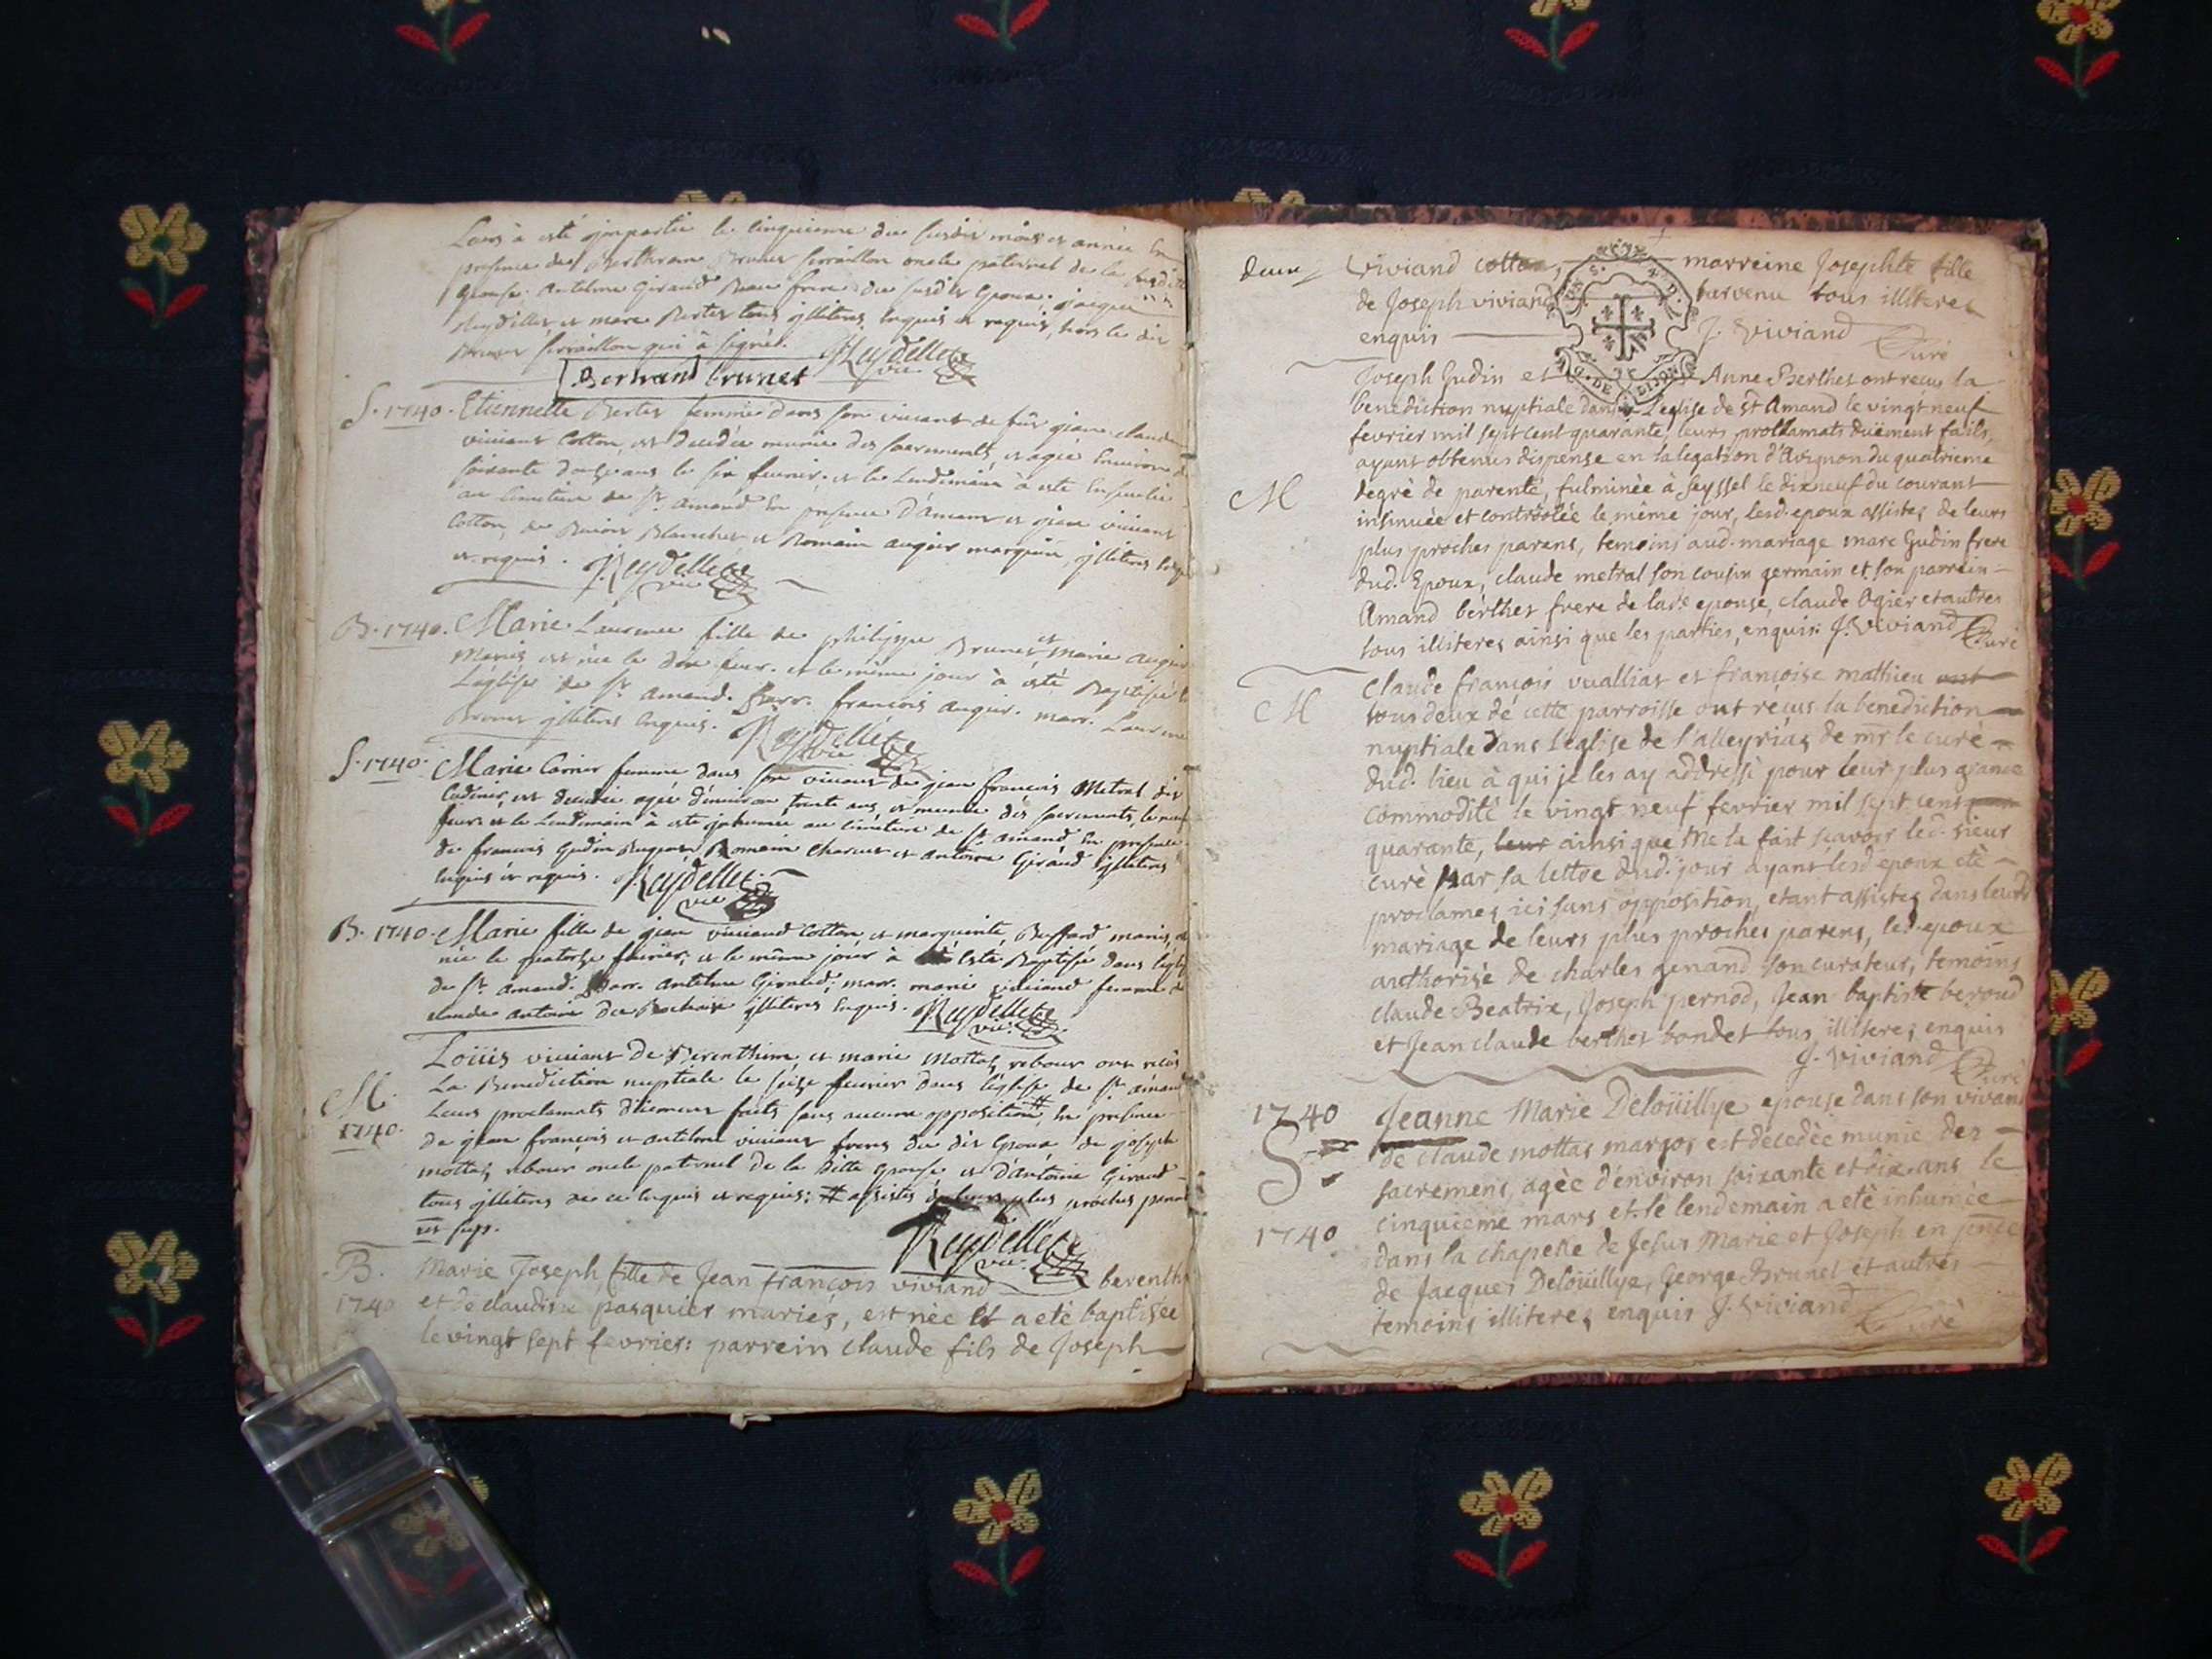 Leurs à esté impartie le cinquieme du susdit mois et année En
presence des Berthram Brunet serraillon oncle paternel de la susditte
Epouse. Antelme Giraud Beau frere du susdit Epoux, jacque
Reydellet et marc Bertet tous illiteres Enquis et requis, hors le dit
Brunet serraillon qui à signé. Reydellet vic.
Bertrand brunet
S. 1740. Etiennette Bertet femme dans son vivant de feu jean claude
viviant Cotton, est decedée munie des sacrements, et agée Environ de
soixante douze ans le six feuvrier, et le Lendemain à esté Ensevelie
au cimetiere de St. amand En presence d'amant et jean viviant
Cotton, de Blanchet et Romain augier marquin, illiteres Enquis
et requis. Reydellet vic.
B. 1740. Marie Laurence fille de philippe Brunet et marie augier
Mariés est née le dix feuv. et le même jour à esté Baptisé
Leglise de St. amand. Parr. francois augier. marr. Laurence
Brunet illiteres Enquis. Reydellet vic.
S. 1740. Marie Carrier femme dans son vivant de jean francois Metral dit
est decedée agée d'environ trente ans, et munie des sacrements, le neuf
feuv. et le Lendemain à este inhumée au cimetiere de St. amand En presence
de francois Gudin Romain Charvet et antoine Giraud illiteres
Enquis et requis. Reydellet vic.
B. 1740. Marie fille de jean viviand Cotton, et marguerite Buffard mariés, est
née le quatorze feuvrier, et le même jour à Esté Baptisé dans leglise
de St. amand. Parr. antelme Giraud; marr. marie viviand femme de
claude antoine illiteres Enquis. Reydellet vic.
Loüis viviant de Berenthin et marie mottas, rebour ont reçus
M. La Benediction nuptiale le seize feuvrier dans leglise de St. amand
1740. Leurs proclamats düement faits sans aucune opposition # En presence
de jean françois et antelme viviant freres du dit Epoux de joseph
mottas, rebour oncle paternel de la ditte Epouse et d'antoine Giraud
tous illiteres de ce Enquis et requis: # assistés de leurs plus proches parens
Reydellet vic.
B. Marie Joseph, fille de Jean françois viviand berenthin
1740 et de claudine pasquier mariez, est née et a eté baptisée
le vingt sept fevrier: parrein claude fils de Joseph
deux viviand cotton, marreine Josephte fille
de Joseph viviand parvenu tous illiterez
enquis J. Viviand Curé
Joseph Gudin et Anne Berthet ont recu la
benediction nuptiale dans L'eglise de St Amand le vingt neuf
fevrier mil sept cent quarante, leurs proclamats düement faits,
ayant obtenus dispense en la legation d'Avignon du quatrieme
M degré de parenté, fulminée à Seyssel le dixneuf du courant
insinuée et controolée le même jour, lesd. epoux assistez de leurs
plus proches parens, temoins aud. mariage marc Gudin frere
dud. Epoux, claude metral son cousin germain et son parrein
Amand berthet frere de lad.e epouse, claude Ogier et autres
tous illiterez ainsi que les parties, enquis. J. Viviand Curé
Claude françois vualliat et françoise mathieu ont
M tous deux de cette parroisse ont reçus la benediction
nuptiale dans L'eglise de l'alleyriaz de mr le curé
dud. lieu à qui je les ay addressé pour leur plus grande
commodité le vingt neuf fevrier mil sept cent
quarante, leur ainsi que me la fait scavoir led. sieur
curé par sa lettre dud. jour ayant lesd. epoux eté
proclamez ici sans opposition, etant assistez dans leurd
mariage de leurs plus proches parens, led. epoux
authorisé de charles genand son curateur, temoins
claude Beatrix, Joseph pernod, Jean baptiste beroud
et Jean claude berthet bondet tous illiterez enquis
J. Viviand Curé
1740 Jeanne Marie Deloüillye epouse dans son vivant
S de claude mottas margos est décedée munie des
sacremens, agée d'environ soixante et six ans le
cinquieme mars et le lendemain a eté inhumée
1740 dans la chapelle de Jesus Marie et Joseph en pnce
de Jacques Deloüillye, George Brunet et autres
temoins illiterez enquis J. Viviand Curé
G. DE DIJON